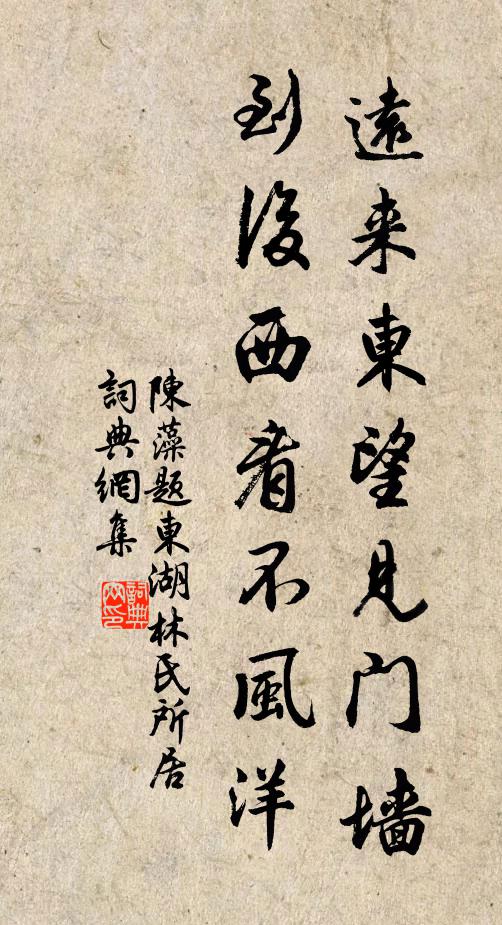 遠来東望見门墻
到後西看不風洋
陳藻题東湖林氏所居
詞典網集
詞典
网印